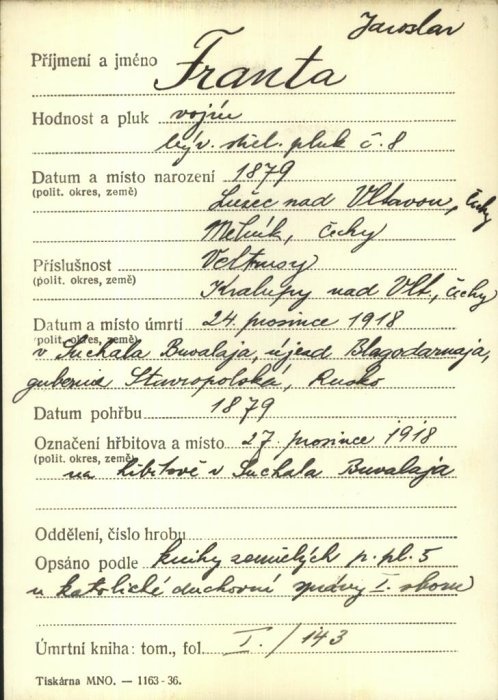 Jaroslav
Příjmení a jméno Franta
Hodnost a pluk vojín
býv. střel. pluk č. 8
Datum a místo narození 1879
(polit. okres, země)
Lužec nad Vltavou, čechy
Mělník, čechy
Příslušnost Veltrusy
(polit. okres, země)
Kralupy nad Vlt., čechy
Datum a místo úmrtí 24. prosince 1918
(polit. okres, země)
v Suchala Buvalaja, újezd Blagodarnaja,
gubernie Stavropolská, Rusko
Datum pohřbu 1879
Označení hřbitova a místo 27. prosince 1918
(polit. okres, země)
na hřbitově v Suchala Buvalaja
Oddělení, číslo hrobu
Opsáno podle knihy zemřelých p. pl. 5
u katolické duchovní správy I. sboru
Úmrtní kniha: tom., fol. I. / 143
Tiskárna MNO. — 1163-36.